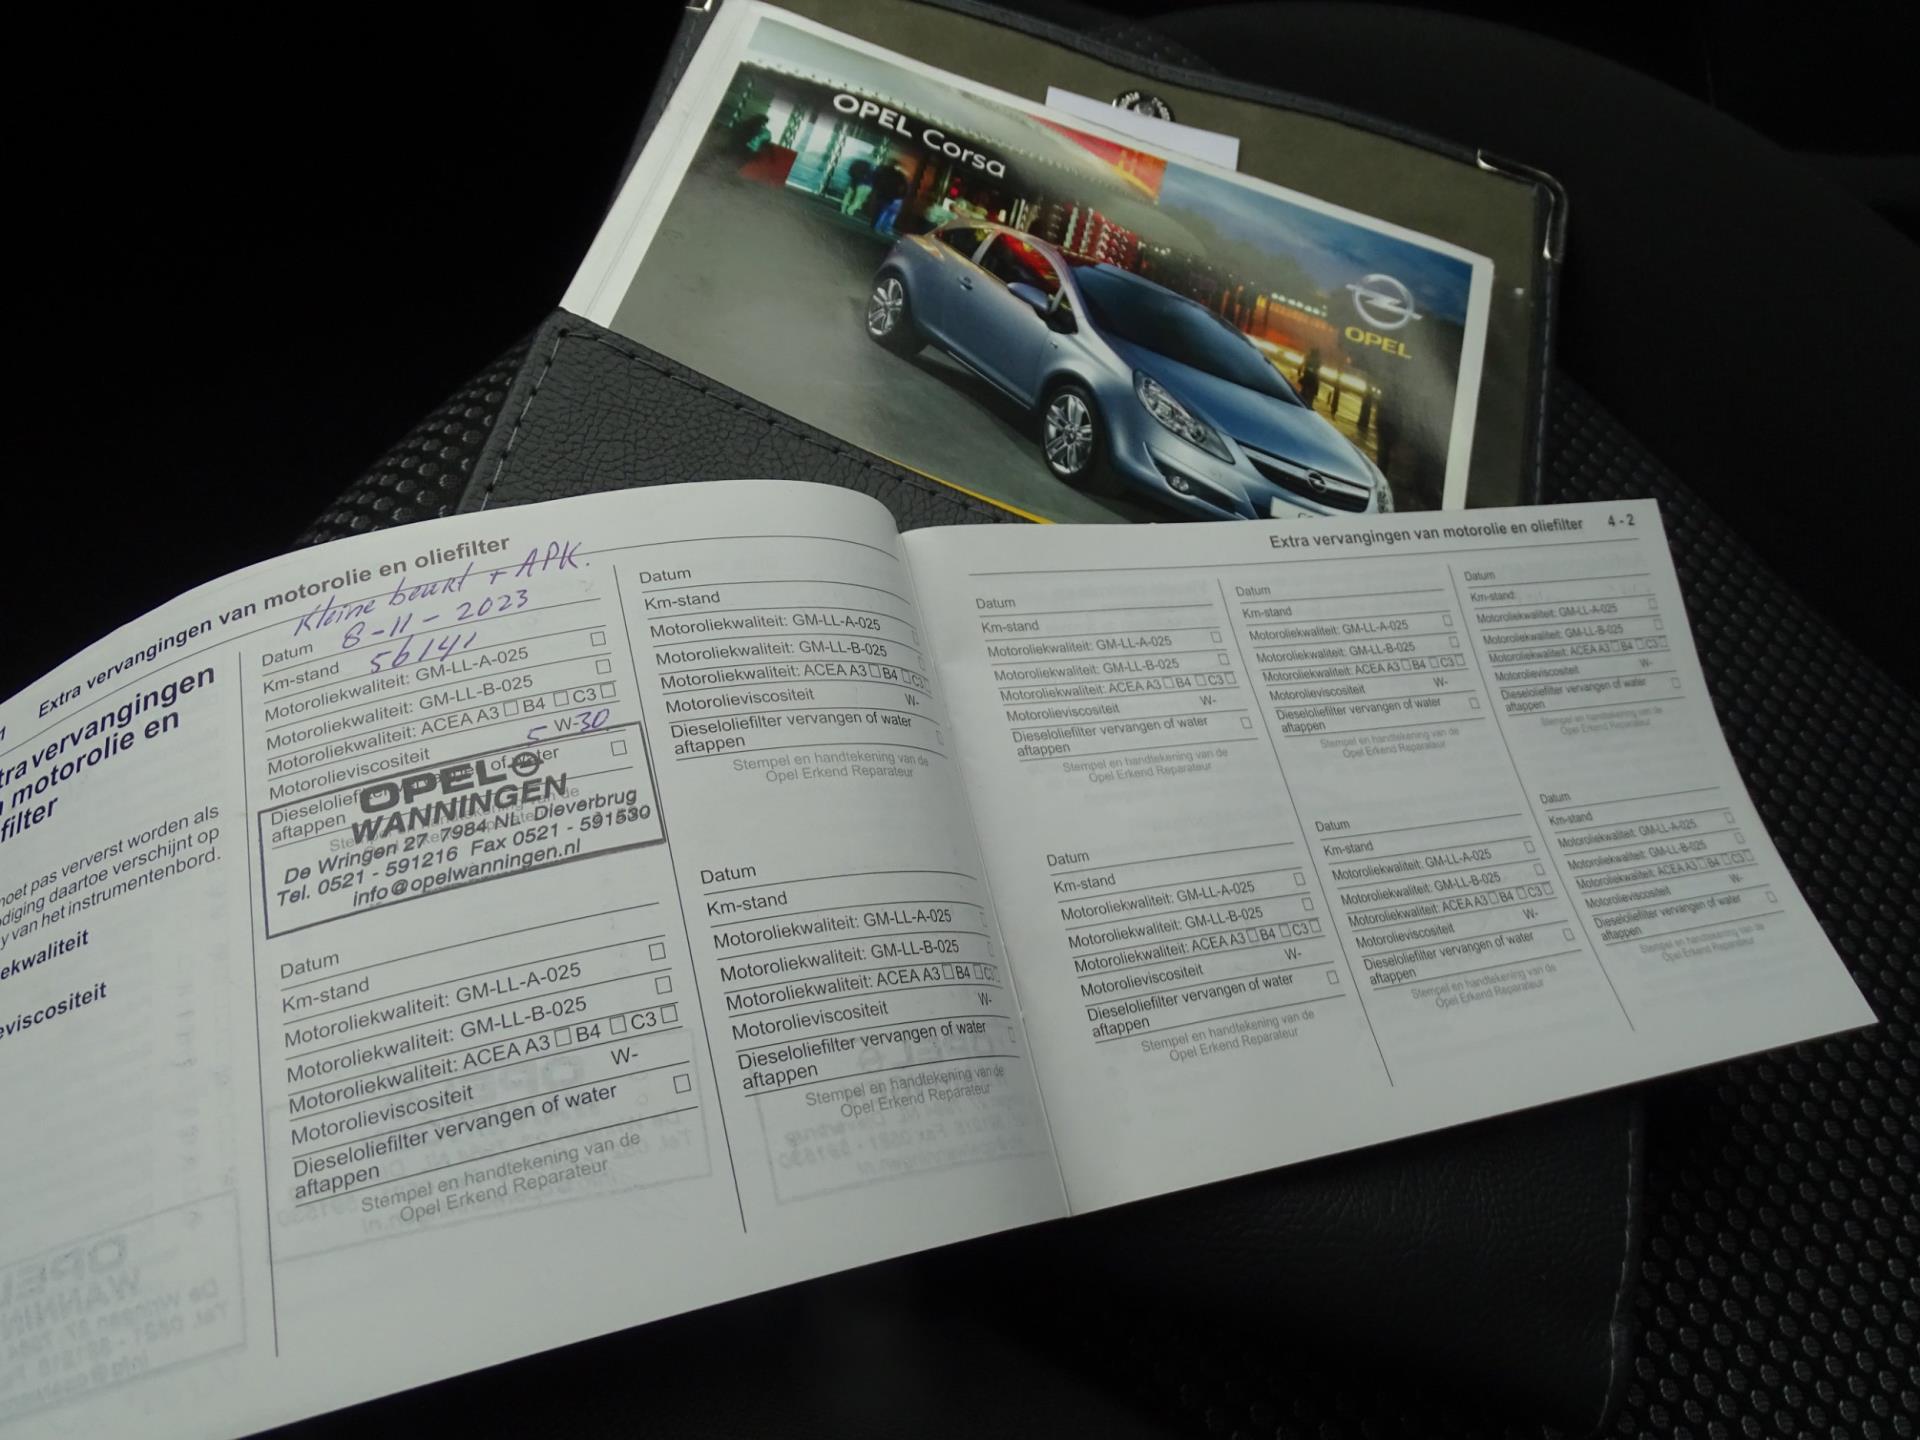 OPEL Corsa
OPEL
Extra vervangingen van motorolie en oliefilter
vervangingen
motorolie en
filter
pas ververst worden als
daartoe verschijnt op
van het instrumentenbord.
Kleine beurt + APK.
Datum 8-11-2023
Km-stand 56141
Motoroliekwaliteit: GM-LL-A-025
Motoroliekwaliteit: GM-LL-B-025
Motoroliekwaliteit: ACEA A3 B4 C3
Motorolieviscositeit 5 W-30
Dieseloliefilter vervangen of water
aftappen
OPEL
WANNINGEN
De Wringen 27 7984 NL Dieverbrug
Tel. 0521 - 591216 Fax 0521 - 591530
info@opelwanningen.nl
Datum
Km-stand
Motoroliekwaliteit: GM-LL-A-025
Motoroliekwaliteit: GM-LL-B-025
Motoroliekwaliteit: ACEA A3 B4 C3
Motorolieviscositeit W-
Dieseloliefilter vervangen of water
aftappen
Stempel en handtekening van de
Opel Erkend Reparateur
Datum
Km-stand
Motoroliekwaliteit: GM-LL-A-025
Motoroliekwaliteit: GM-LL-B-025
Motoroliekwaliteit: ACEA A3 B4 C3
Motorolieviscositeit W-
Dieseloliefilter vervangen of water
aftappen
Stempel en handtekening van de
Opel Erkend Reparateur
Datum
Km-stand
Motoroliekwaliteit: GM-LL-A-025
Motoroliekwaliteit: GM-LL-B-025
Motoroliekwaliteit: ACEA A3 B4 C3
Motorolieviscositeit W-
Dieseloliefilter vervangen of water
aftappen
Stempel en handtekening van de
Opel Erkend Reparateur
Extra vervangingen van motorolie en oliefilter 4 - 2
Datum
Km-stand
Motoroliekwaliteit: GM-LL-A-025
Motoroliekwaliteit: GM-LL-B-025
Motoroliekwaliteit: ACEA A3 B4 C3
Motorolieviscositeit W-
Dieseloliefilter vervangen of water
aftappen
Stempel en handtekening van de
Opel Erkend Reparateur
Datum
Km-stand
Motoroliekwaliteit: GM-LL-A-025
Motoroliekwaliteit: GM-LL-B-025
Motoroliekwaliteit: ACEA A3 B4 C3
Motorolieviscositeit W-
Dieseloliefilter vervangen of water
aftappen
Stempel en handtekening van de
Opel Erkend Reparateur
Datum
Km-stand
Motoroliekwaliteit: GM-LL-A-025
Motoroliekwaliteit: GM-LL-B-025
Motoroliekwaliteit: ACEA A3 B4 C3
Motorolieviscositeit W-
Dieseloliefilter vervangen of water
aftappen
Stempel en handtekening van de
Opel Erkend Reparateur
Datum
Km-stand
Motoroliekwaliteit: GM-LL-A-025
Motoroliekwaliteit: GM-LL-B-025
Motoroliekwaliteit: ACEA A3 B4 C3
Motorolieviscositeit W-
Dieseloliefilter vervangen of water
aftappen
Stempel en handtekening van de
Opel Erkend Reparateur
Datum
Km-stand
Motoroliekwaliteit: GM-LL-A-025
Motoroliekwaliteit: GM-LL-B-025
Motoroliekwaliteit: ACEA A3 B4 C3
Motorolieviscositeit W-
Dieseloliefilter vervangen of water
aftappen
Stempel en handtekening van de
Opel Erkend Reparateur
Datum
Km-stand
Motoroliekwaliteit: GM-LL-A-025
Motoroliekwaliteit: GM-LL-B-025
Motoroliekwaliteit: ACEA A3 B4 C3
Motorolieviscositeit W-
Dieseloliefilter vervangen of water
aftappen
Stempel en handtekening van de
Opel Erkend Reparateur